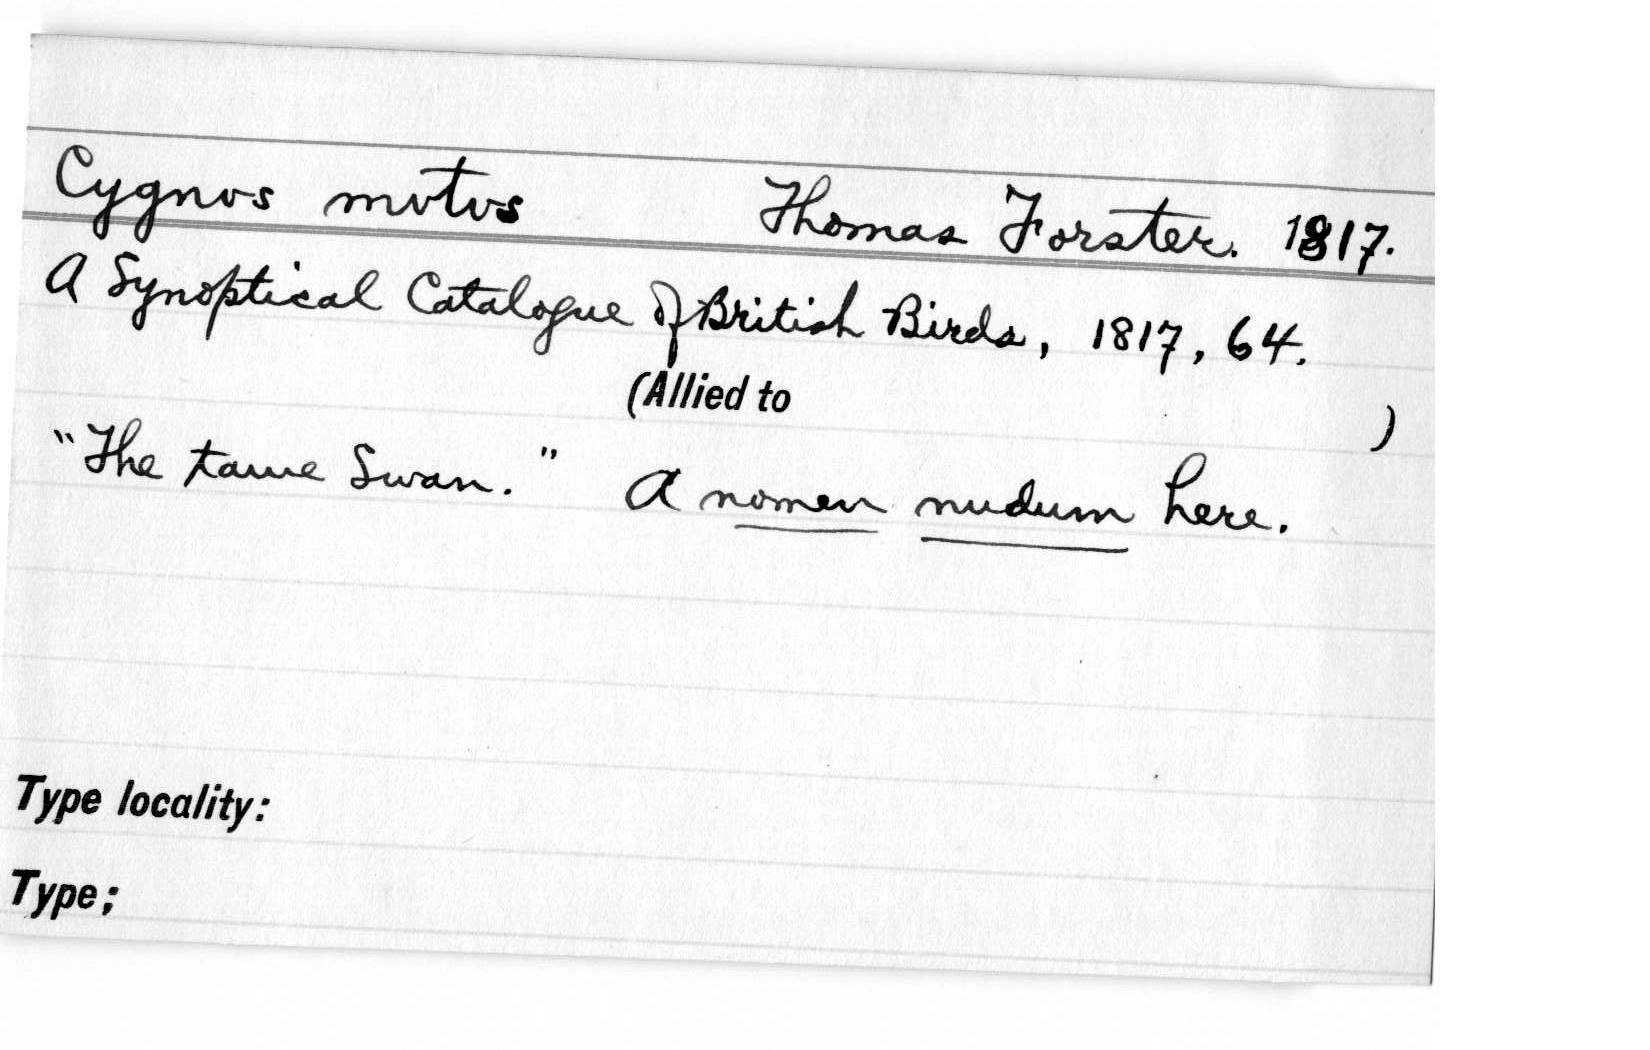 Cygnus mutus Thomas Forster. 1817.
A Synoptical Catalogue of British Birds, 1817, 64.
(Allied to )
"The tame Swan." A nomen nudum here.
Type locality:
Type;